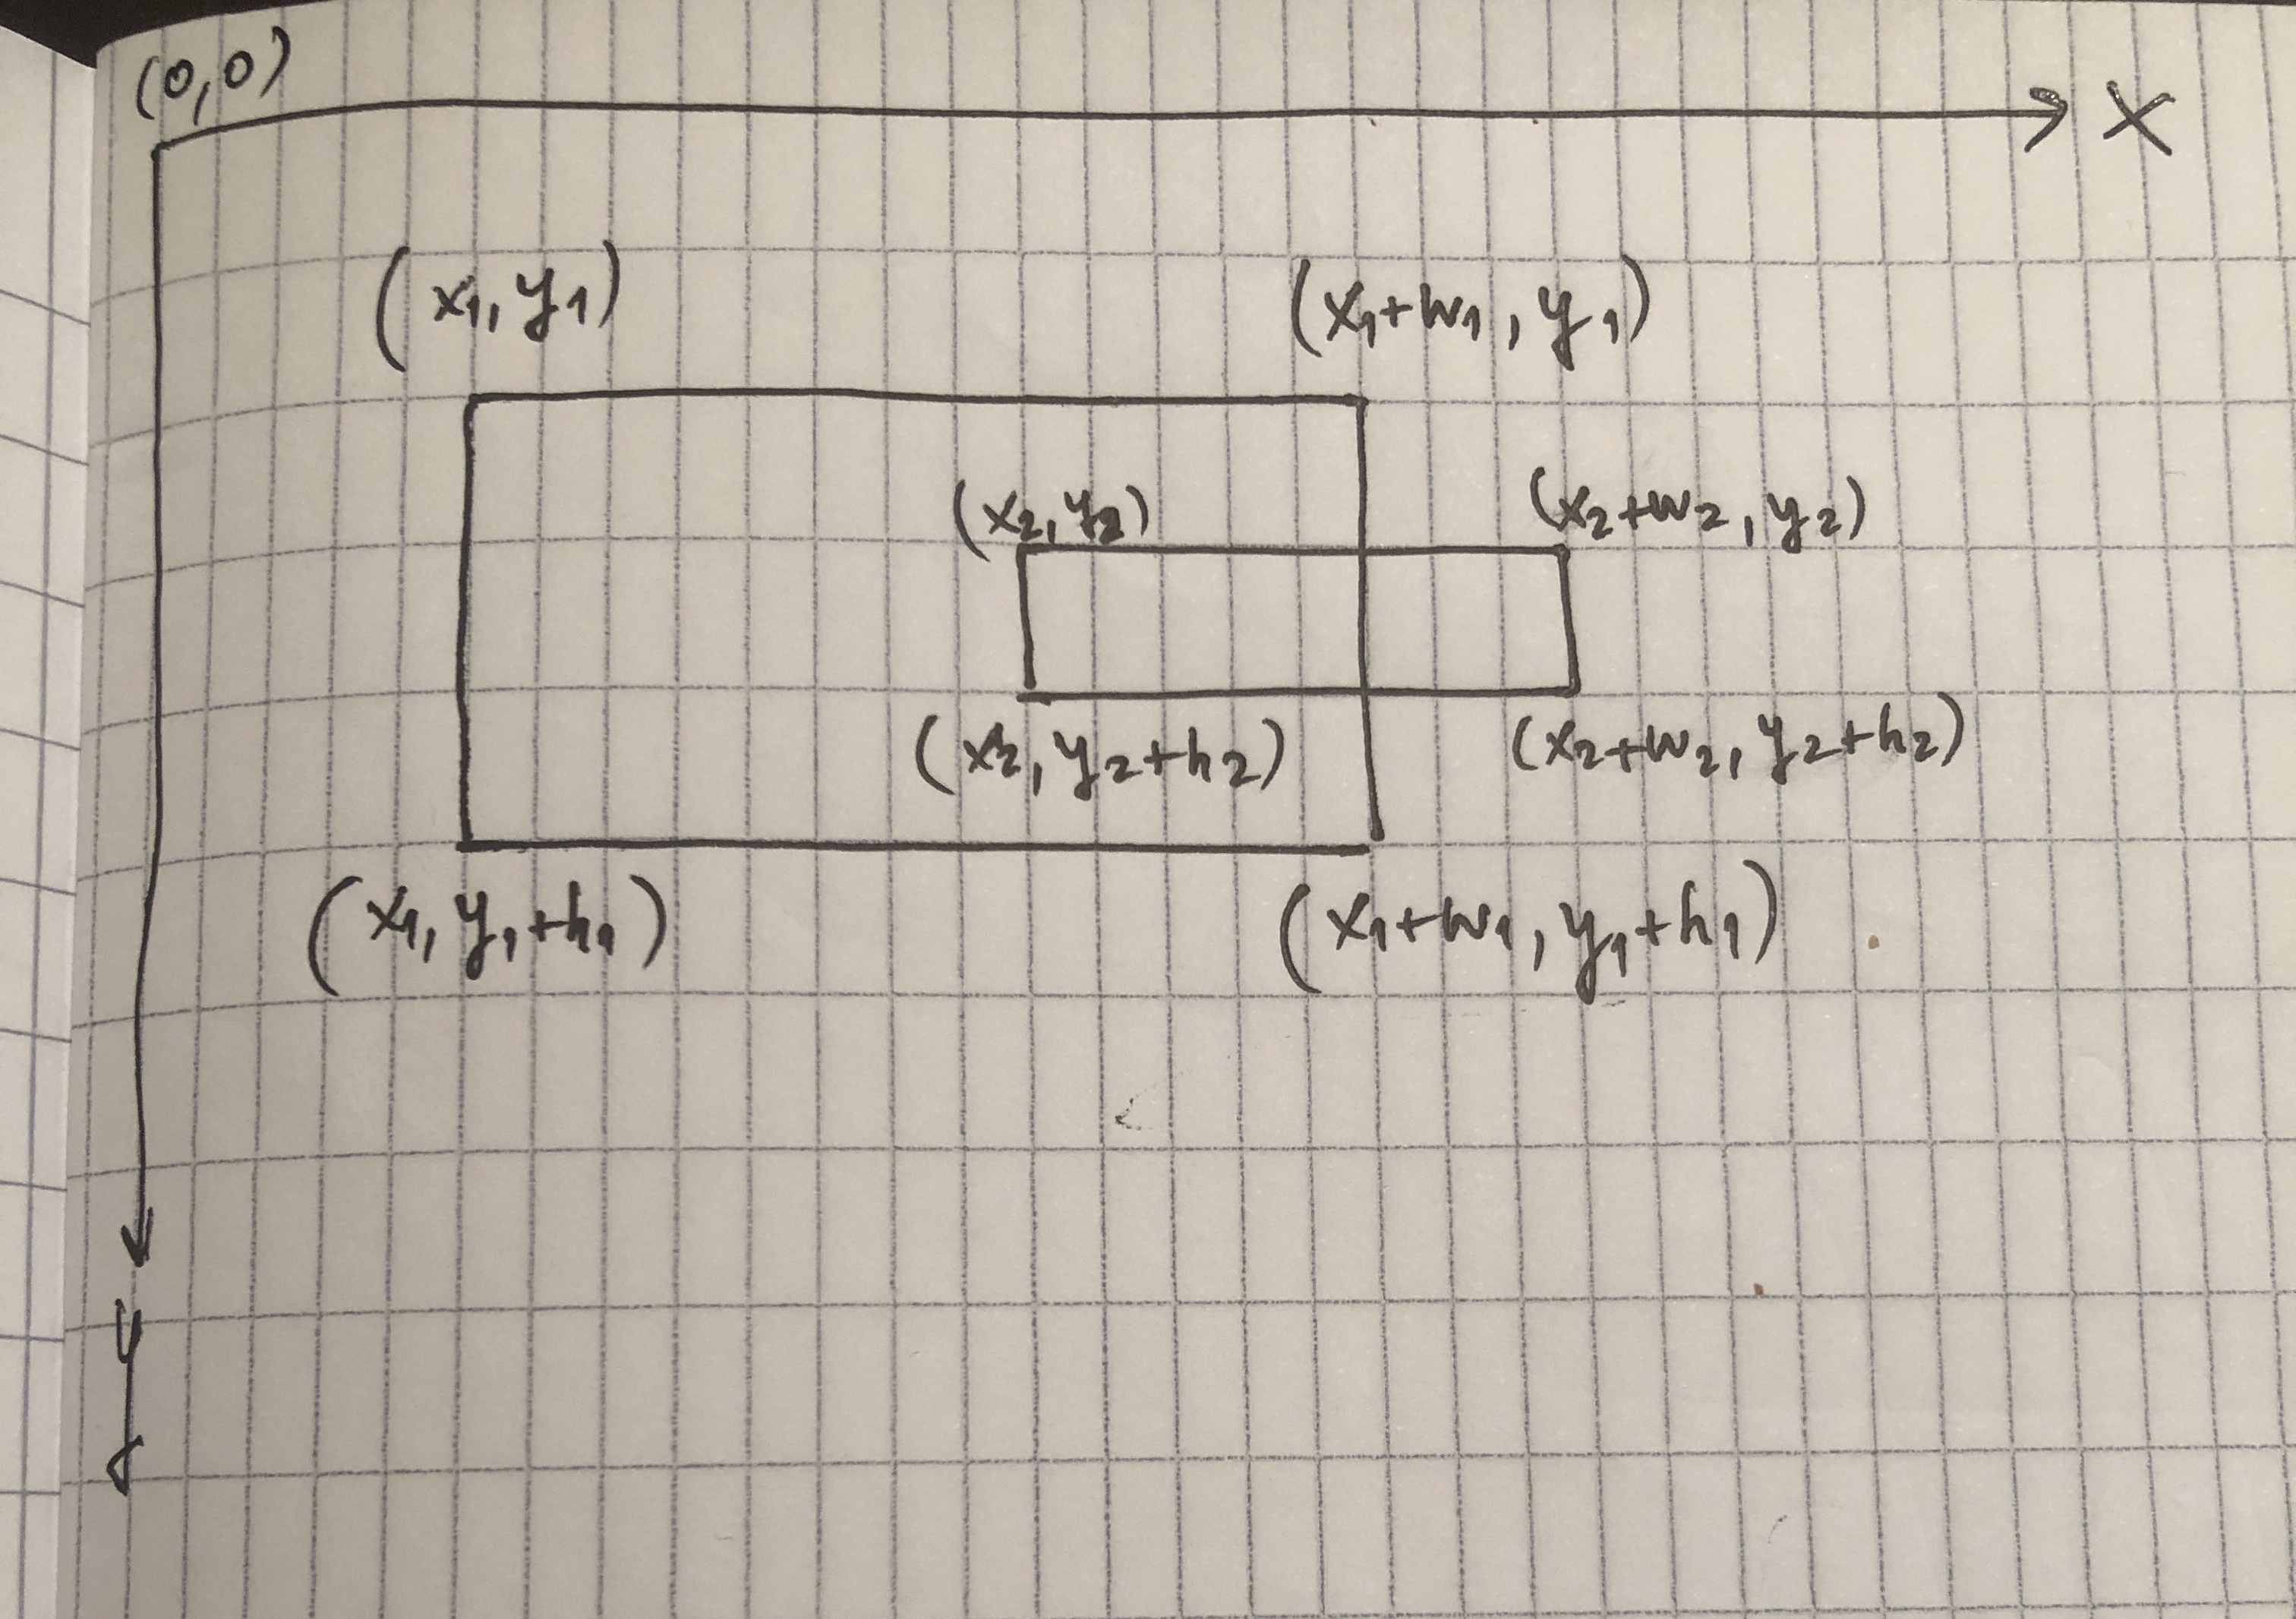 (0,0)
X
(x1, y1) (x1+w1, y1)
(x2, y2) (x2+w2, y2)
(x2, y2+h2) (x2+w2, y2+h2)
(x1, y1+h1) (x1+w1, y1+h1)
y